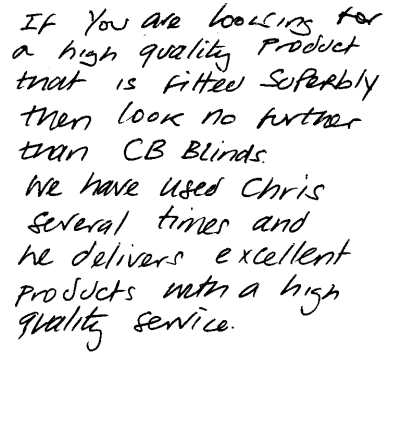 If You are looking for
a high quality Product
that is fitted Superbly
then look no further
than CB Blinds.
We have used Chris
several times and
he delivers excellent
products with a high
quality service.